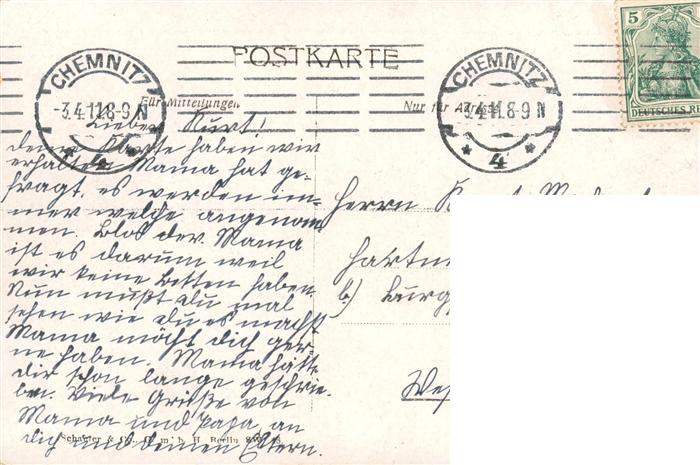 POSTKARTE
CHEMNITZ
-3.4.11.8-9 N
4
CHEMNITZ
-3.4.11.8-9 N
4
5
DEUTSCHES RE
Für Mitteilungen
Nur für
Lieber Kurt!
deine Karte haben wir
erhalten Mama hat ge-
fragt, es werden im-
mer welche angenom
men. Blos der Mama
ist es darum weil
wir keine Betten haben
Nun mußt du mal
sehen wie du es machst
Mama möcht dich ger-
ne haben. Mama hätte
dir schon lange geschrie-
ben. Viele Grüße von
Mama und Papa, an
dich und deinen Eltern.
Herrn
Hartm
b/ Burg
Wes
Schaefer & Co., G. m. b. H. Berlin